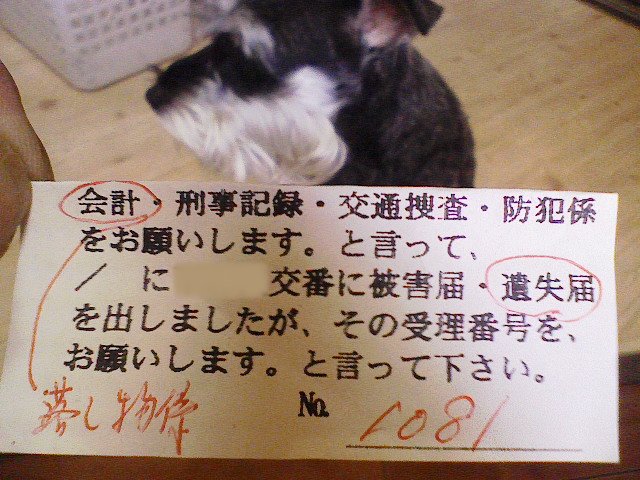 会計・刑事記録・交通捜査・防犯係
をお願いします。と言って、
／ に 交番に被害届・遺失届
を出しましたが、その受理番号を、
お願いします。と言って下さい。
落し物係
No. 1081